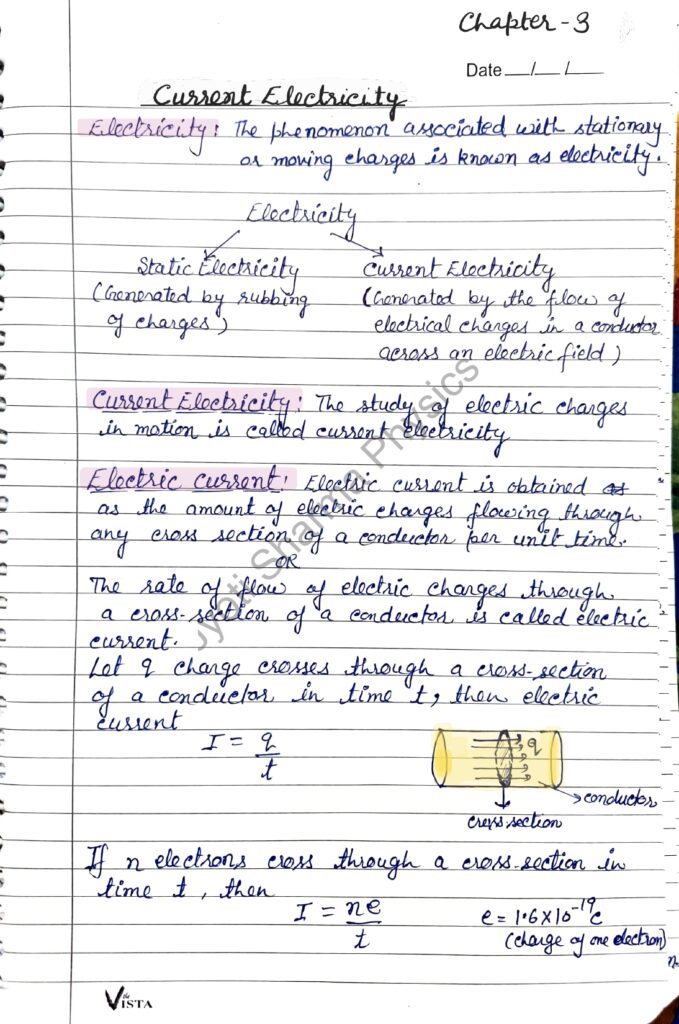 Chapter-3
Date __/__/__
Current Electricity
Electricity: The phenomenon associated with stationary
or moving charges is known as electricity.
Electricity
Static Electricity
(Generated by rubbing
of charges)
Current Electricity
(Generated by the flow of
electrical charges in a conductor
across an electric field)
Current Electricity: The study of electric charges
in motion is called current electricity
Electric current: Electric current is obtained
as the amount of electric charges flowing through
any cross section of a conductor per unit time.
OR
The rate of flow of electric charges through
a cross-section of a conductor is called electric
current.
Let q charge crosses through a cross-section
of a conductor in time t, then electric
current
I = q/t
q
conductor
cross-section
If n electrons cross through a cross-section in
time t, then
I = ne/t
e = 1.6×10⁻¹⁹C
(charge of one electron)
the VISTA
Jyoti Sharma Physics